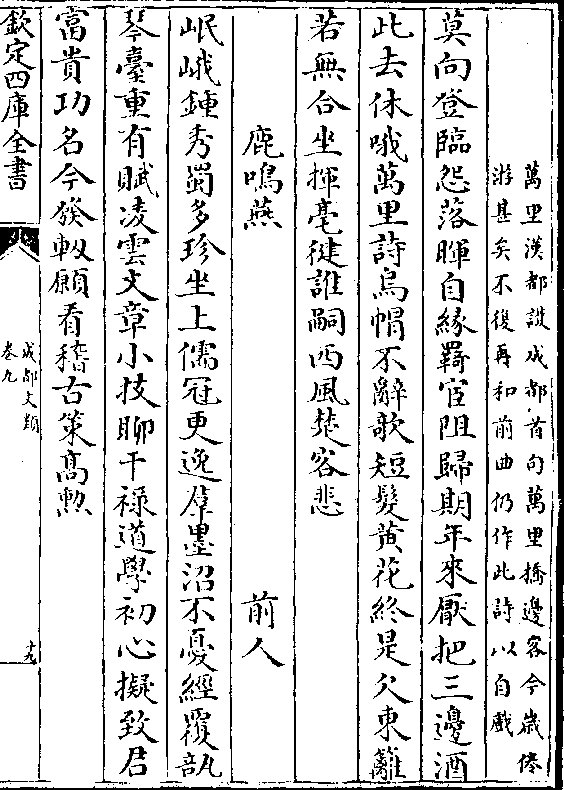 萬里漢都設成都首句萬里橋邊客今歲俸
游甚矣不復再和前曲仍作此詩以自戲
莫向登臨怨落暉自緣羇宦阻歸期年來厭把三邊酒
此去休哦萬里詩烏帽不辭歌短髮黄花終是欠東籬
若無合坐揮毫徤誰嗣西風楚客悲
鹿鳴燕 前人
岷峨鍾秀蜀多珍坐上儒冠更逸羣墨沼不憂經覆瓿
琴臺重有賦凌雲文章小技聊干祿道學初心擬致君
富貴功名今發軔願看稽古策高勲
欽定四庫全書
成都文類
卷九
十九